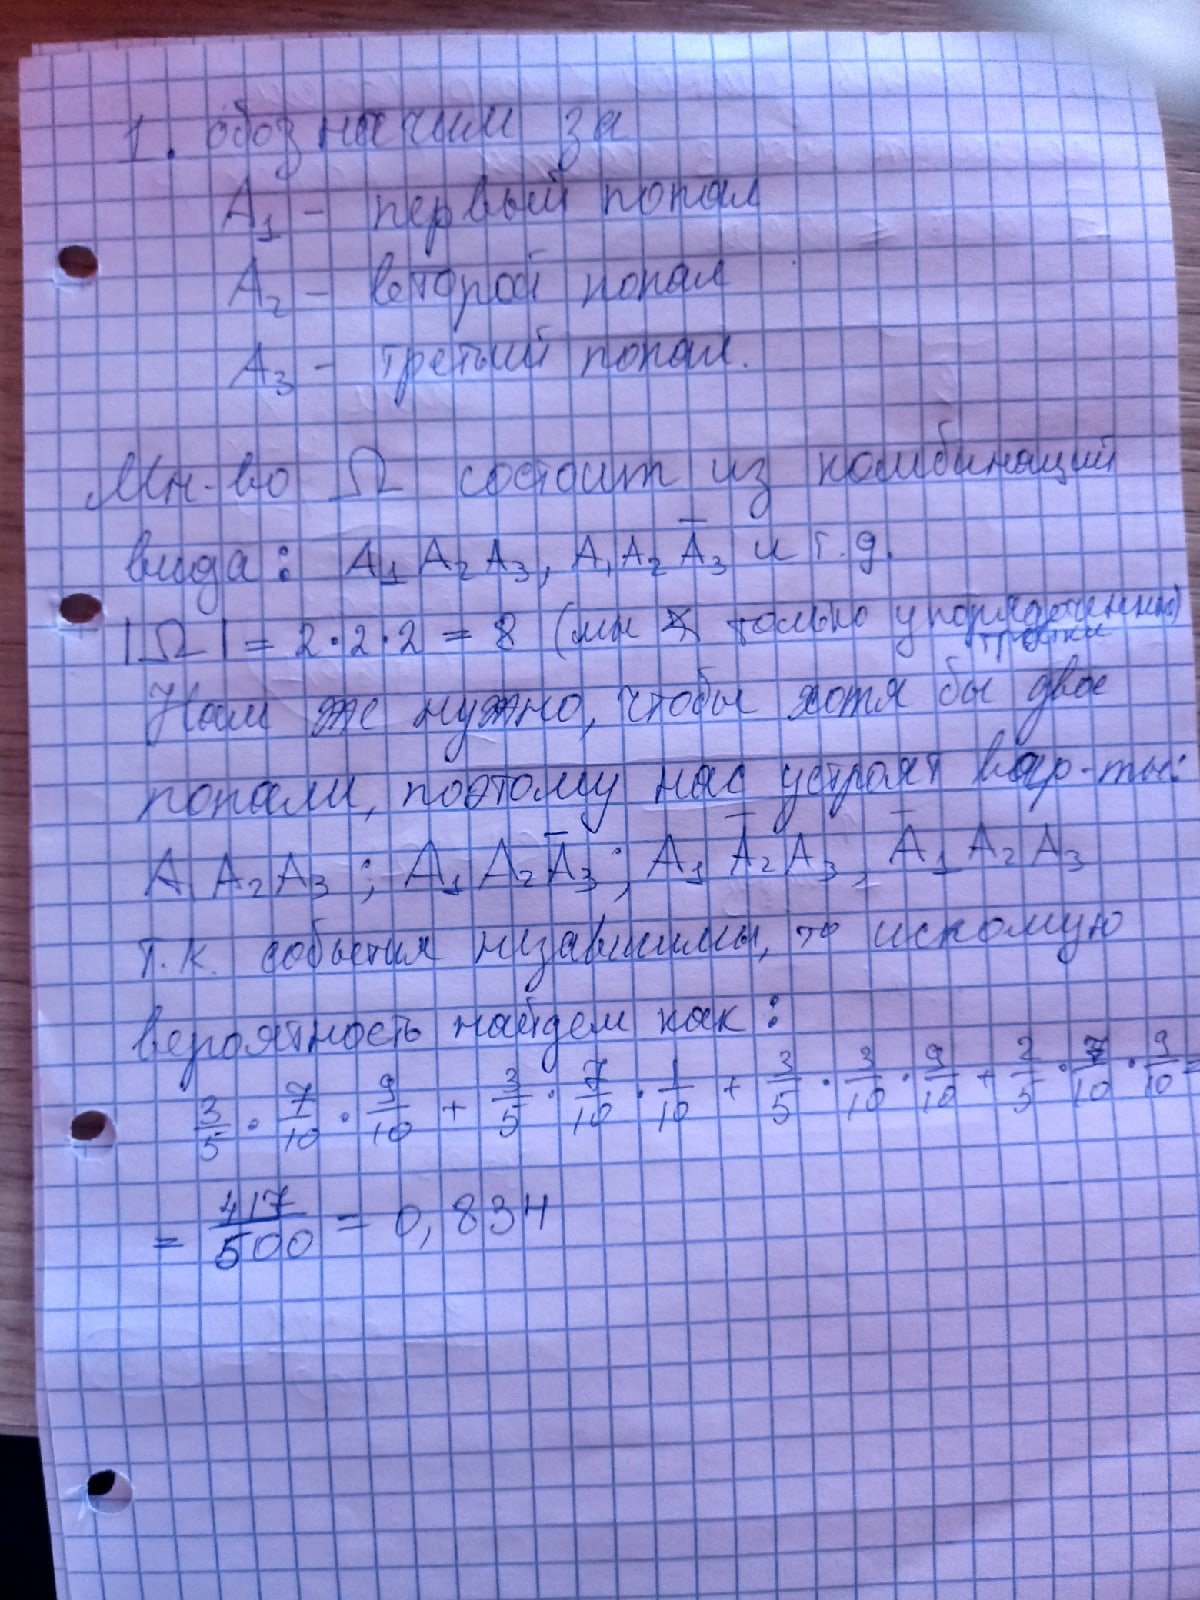 1. обозначим за
A₁ - первый попал
A₂ - второй попал
A₃ - третий попал.
Мн-во Ω состоит из комбинаций
вида: A₁ A₂ A₃, A₁ A₂ A̅₃ и т.д.
|Ω| = 2·2·2 = 8 (мн только упорядоченные)
тройки
Нам же нужно, чтобы хотя бы двое
попали, поэтому нас устроят вар-ты:
A A₂ A₃ ; A₁ A₂ A̅₃ ; A₁ A̅₂ A₃, A̅₁ A₂ A₃
т.к. события независимы, то искомую
вероятность найдем как:
3/5 · 7/10 · 9/10 + 3/5 · 7/10 · 1/10 + 3/5 · 3/10 · 9/10 + 2/5 · 7/10 · 9/10 =
= 417/500 = 0,834